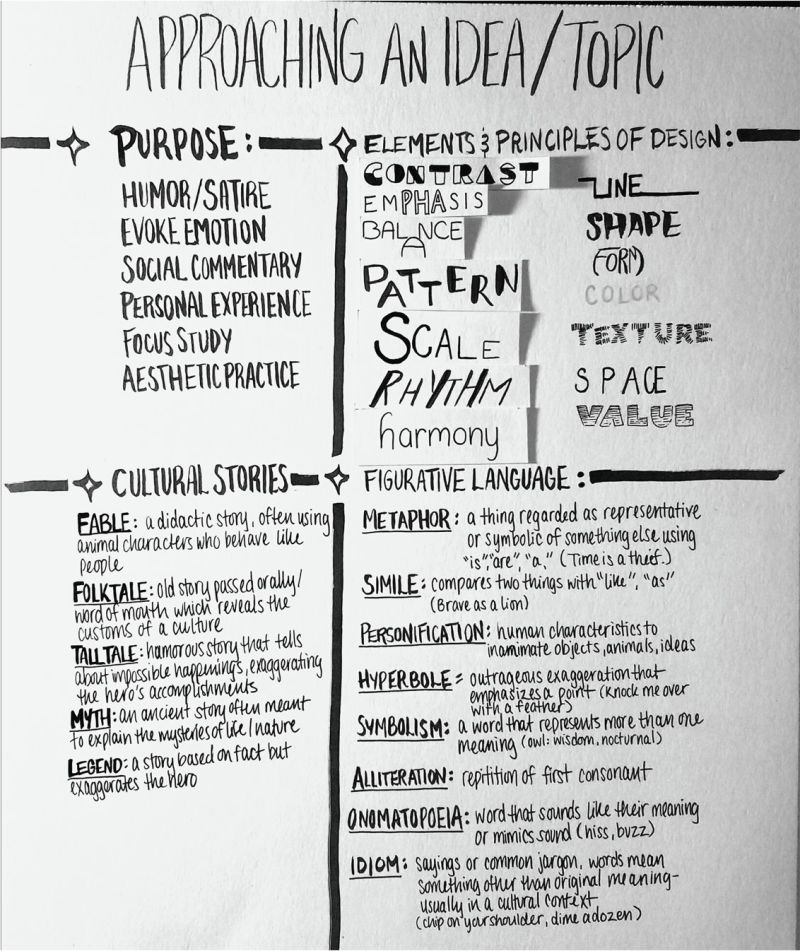 APPROACHING AN IDEA/TOPIC
PURPOSE:
HUMOR/SATIRE
EVOKE EMOTION
SOCIAL COMMENTARY
PERSONAL EXPERIENCE
FOCUS STUDY
AESTHETIC PRACTICE
ELEMENTS & PRINCIPLES OF DESIGN:
CONTRAST
EMPHASIS
BALANCE
PATTERN
SCALE
RHYTHM
harmony
LINE
SHAPE
FORM
COLOR
TEXTURE
SPACE
VALUE
CULTURAL STORIES
FABLE: a didactic story, often using
animal characters who behave like
people
FOLKTALE: old story passed orally/
word of mouth which reveals the
customs of a culture
TALL TALE: hamorous story that tells
about impossible happenings, exaggerating
the hero's accomplishments
MYTH: an ancient story often meant
to explain the mysteries of life/nature
LEGEND: a story based on fact but
exaggerates the hero
FIGURATIVE LANGUAGE:
METAPHOR: a thing regarded as representative
or symbolic of something else using
"is", "are", "a," (Time is a theif.)
SIMILE: compares two things with "like", "as"
(Brave as a lion)
PERSONIFICATION: human characteristics to
inanimate objects, animals, ideas
HYPERBOLE: outrageous exaggeration that
emphasizes a point (Knock me over
with a feather)
SYMBOLISM: a word that represents more than one
meaning (owl: wisdom, nocturnal)
ALLITERATION: repitition of first consonant
ONOMATOPOEIA: word that sounds like their meaning
or mimics sound (hiss, buzz)
IDIOM: sayings or common jargon, words mean
something other than original meaning-
usually in a cultural context
(chip on your shoulder, dime a dozen)